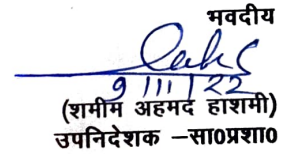 भवदीय
9/11/22
(शमीम अहमद हाशमी)
उपनिदेशक –सा0प्रशा0